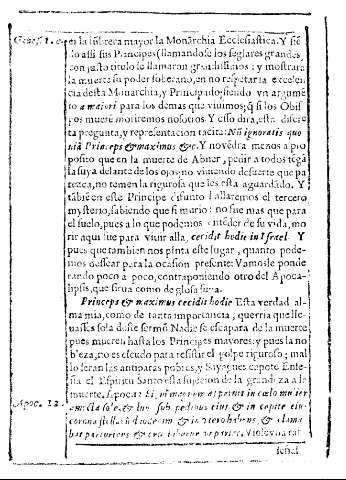 Genes. 1.
es la lũbrera mayor la Monarchia Ecclesiastica. Y siẽ
lo assi sus Principes (llamandole los seglares grandes,
con justo titulo se llamaron grandissimos: y mostrara
la muerte su poder soberano, en no respetar la excelen
cia desta Monarchia, y Principado; siendo vn argumẽ
to a maiori para los demas que viuimos; q̃ si los Obis
pos muerẽ moriremos nosotros. Y esso dira, esta discre
ta pregunta, y representacion tacita: Nũ ignoratis quo
niã Princeps & maximus &c. Y no vẽdra menos a pro
posito que en la muerte de Abner, pedir a todos tẽgã
la suya delante de los ojos, no viuiendo de suerte que pa
rezca, no temen la rigurosa que les esta aguardãdo. Y
tãbiẽ en este Principe difunto hallaremos el tercero
mysterio, sabiendo que si murio: no fue mas que para
el suelo, pues a lo que podemos entẽder de su vida, mo
rir aqui fue para viuir alla, cecidit hodie in Israel. Y
pues que tambien nos pinta este lugar, quanto pode-
mos dessear para la ocasion presente: Vamosle ponde
rando poco a poco, contraponiendo otro del Apoca-
lipsis, que sirua como de glosa suya.
Princeps & maximus cecidit hodie Esta verdad al-
ma mia, como de tanta importancia, querria que lle-
uasses sola deste sermõ Nadie se escapara de la muerte
pues mueren hasta los Principes mayores: y pues la no
bleza, no es escudo para resistir el golpe riguroso; mal
lo seran las antiparas pobres, y Sayagues capote Ense-
ña el Espiritu Santo esta sujecion de la grandeza a la
muerte.
Apoc. 12.
signum magnum apparuit in cœlo mulier
amicta sole, & luna sub pedibus eius & in capite eius
corona stellarũ duodecim & in vtero habens, & clama
bat parturiens &